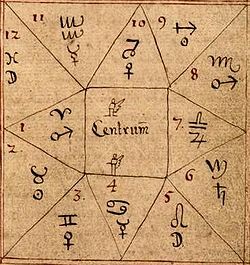 11 10 9
12 ♒ ♐
8
♓ ♏ ♂
1 ♈ ♂ Centrum 7. ♎ ♃
2
♉ ☉ 6 ♍ ♄
3. 4 5
♊ ☿ ♋ ♀ ♌ D